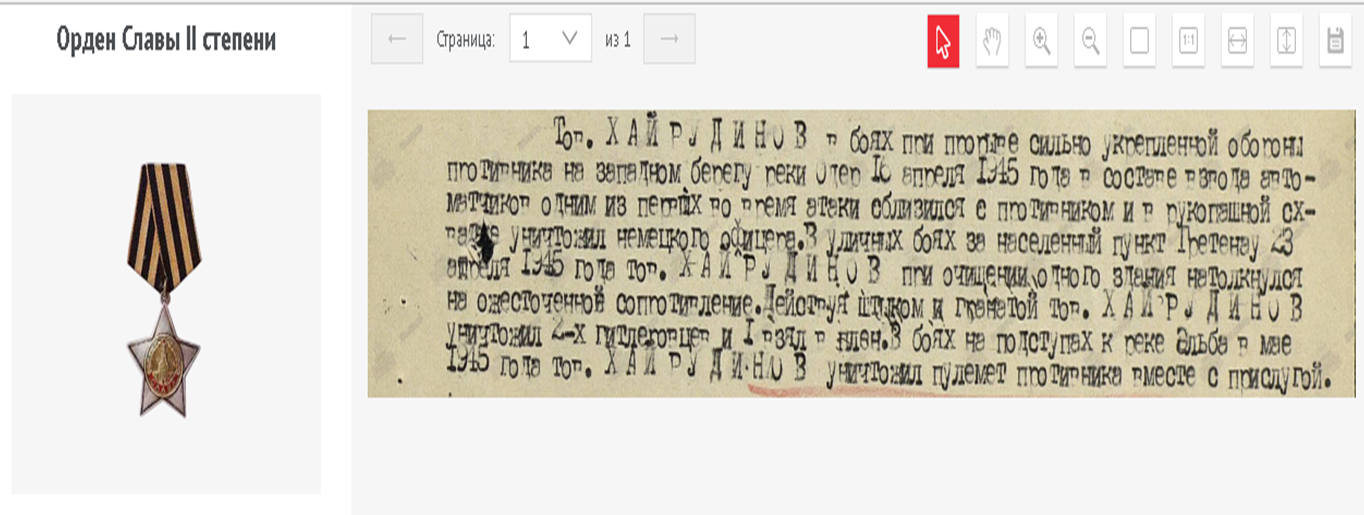 Орден Славы II степени
Страница: 1 из 1
1:1
Тов. ХАЙРУДИНОВ в боях при прорыве сильно укрепленной обороны
противника на западном берегу реки Одер 16 апреля 1945 года в составе взвода авто-
матчиков одним из первых во время атаки сблизился с противником и в рукопашной сх-
ватке уничтожил немецкого офицера.В уличных боях за населенный пункт Третенау 23
апреля 1945 года тов. ХАЙРУДИНОВ при очищении одного здания натолкнулся
на ожесточенное сопротивление.Действуя штыком и гранатой тов. ХАЙРУДИНОВ
уничтожил 2-х гитлеровцев и I взял в плен.В боях на подступах к реке Эльба в мае
1945 года тов. ХАЙРУДИНОВ уничтожил пулемет противника вместе с прислугой.